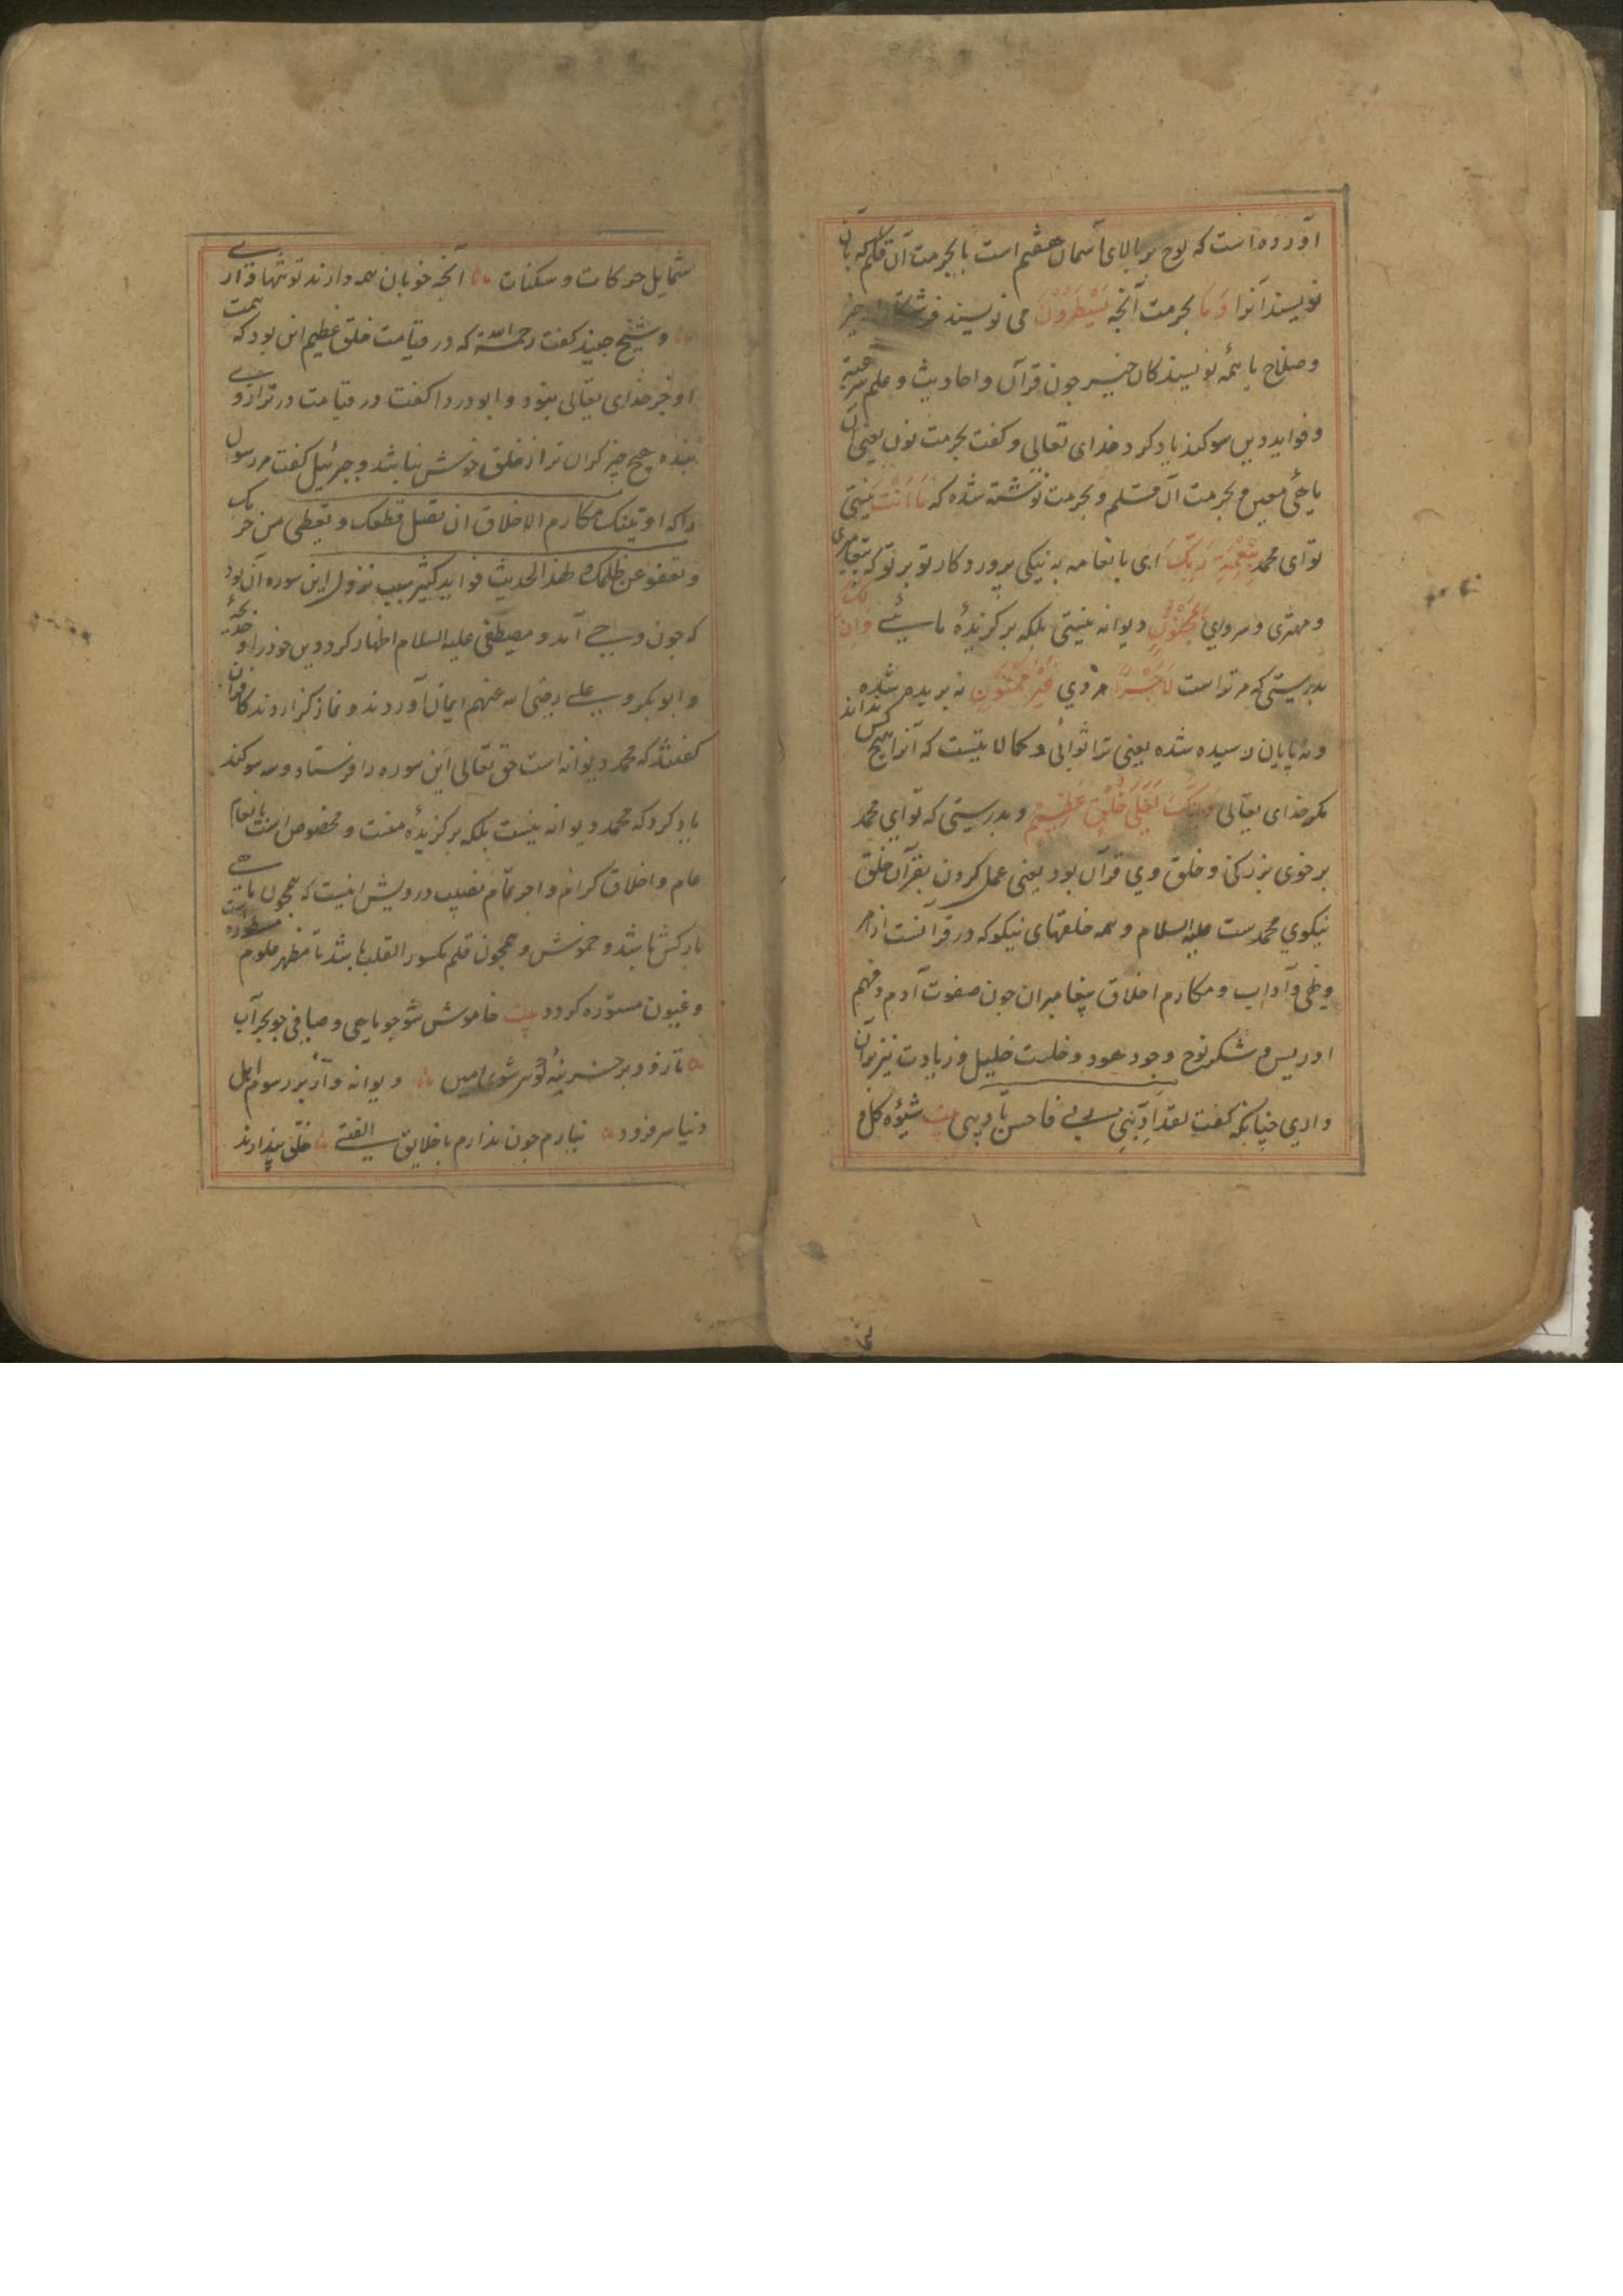 آورده است که لوح بر بالای آسمان هفتم است بالحرمت آن قلم که بآن
نویسند آنرا وَمَا بحرمت آنچه یَسْطُرُوْنَ می نویسند فرشتگان از خیر
وصلاح یا همه نویسندکان خیر جون قرآن واحادیث وعلم شرعیه
وفواید دین سوکند یاد کرد خدای تعالی وکفت بحرمت نون یعنی آن
ماهی معین و بحرمت آن قلم و بحرمت نوشته شده که مَا اَنْتَ نیستی
تو ای محمد بِنِعْمَةِ رَبِّکَ ای بانعامه به نیکی پروردکار تو بر تو که پیغامبری
ومهتری وسروری بِمَجْنُوْنٍ دیوانه نیستی بلکه برکزیدهٔ مائی وَاِنَّ لَکَ
بدرستی که مر تراست لَاَجْرًا مزدی غَیْرَ مَمْنُوْنٍ نه بریده شده
ونه پایان رسیده شده یعنی ترا ثوابی وکمالاتیست که آنرا هیچ کس نداند
مکر خدای تعالی وَاِنَّکَ لَعَلٰی خُلُقٍ عَظِیْمٍ وبدرستی که تو ای محمد
بر خوی بزرکی وخلق وی قرآن بود یعنی عمل کردن بقرآن خلق
نیکوی محمدست علیه السلام وهمه خلقهای نیکو که در قرآنست از امر
ونهی وآداب ومکارم اخلاق پیغامبران جون صفوت آدم وفهم
ادریس و شکر نوح وجود هود وخلت خلیل وزیادت نیز بر آن
داری چنانکه کفت لقد ادبنی ربی فاحسن تادیبی بیت شیوهٔ کل و
شمایل حرکات وسکنات آنچه خوبان همه دارند تو تنها داری
وشیخ جنید کفت رحمه الله که در قیامت خلق عظیم این بود که همت
او جز خدای تعالی نبود وابودردا کفت در قیامت در ترازوی
بنده هیچ چیز کران تر از خلق خوش نباشد وجبرئیل کفت مر رسول
را که اوتیتک مکارم الاخلاق ان تصل قطعک وتعطی من حرمک
وتعفو عن ظلمک هذا الحدیث فواید کثیر سبب نزول این سوره آن بود
که جون وحی آمد ومصطفی علیه السلام اظهار کرد دین خود را وخدیجه
وابوبکر وعلی رضی الله عنهم ایمان آوردند ونماز کزاردند کافران
کفتند که محمد دیوانه است حق تعالی این سوره را فرستاد وسوکند
یاد کرد که محمد دیوانه نیست بلکه برکزیدهٔ منست ومخصوص است بانعام
عام واخلاق کرام واجر تمام نصیب درویش اینست که همچون ماهی
بارکش باشد وخموش وهمچون قلم مکسور القلب باشد تا مظهر علوم
وغیون مستوره کردد بیت خاموش شو جو ماهی وصافی جو بحر آب
تا زود بر خزینهٔ کوهر شوی امین دیوانه وار بر رسوم اهل
دنیا سر فرود نیارم جون ندارم با خلایق الفتی خلق پندارند